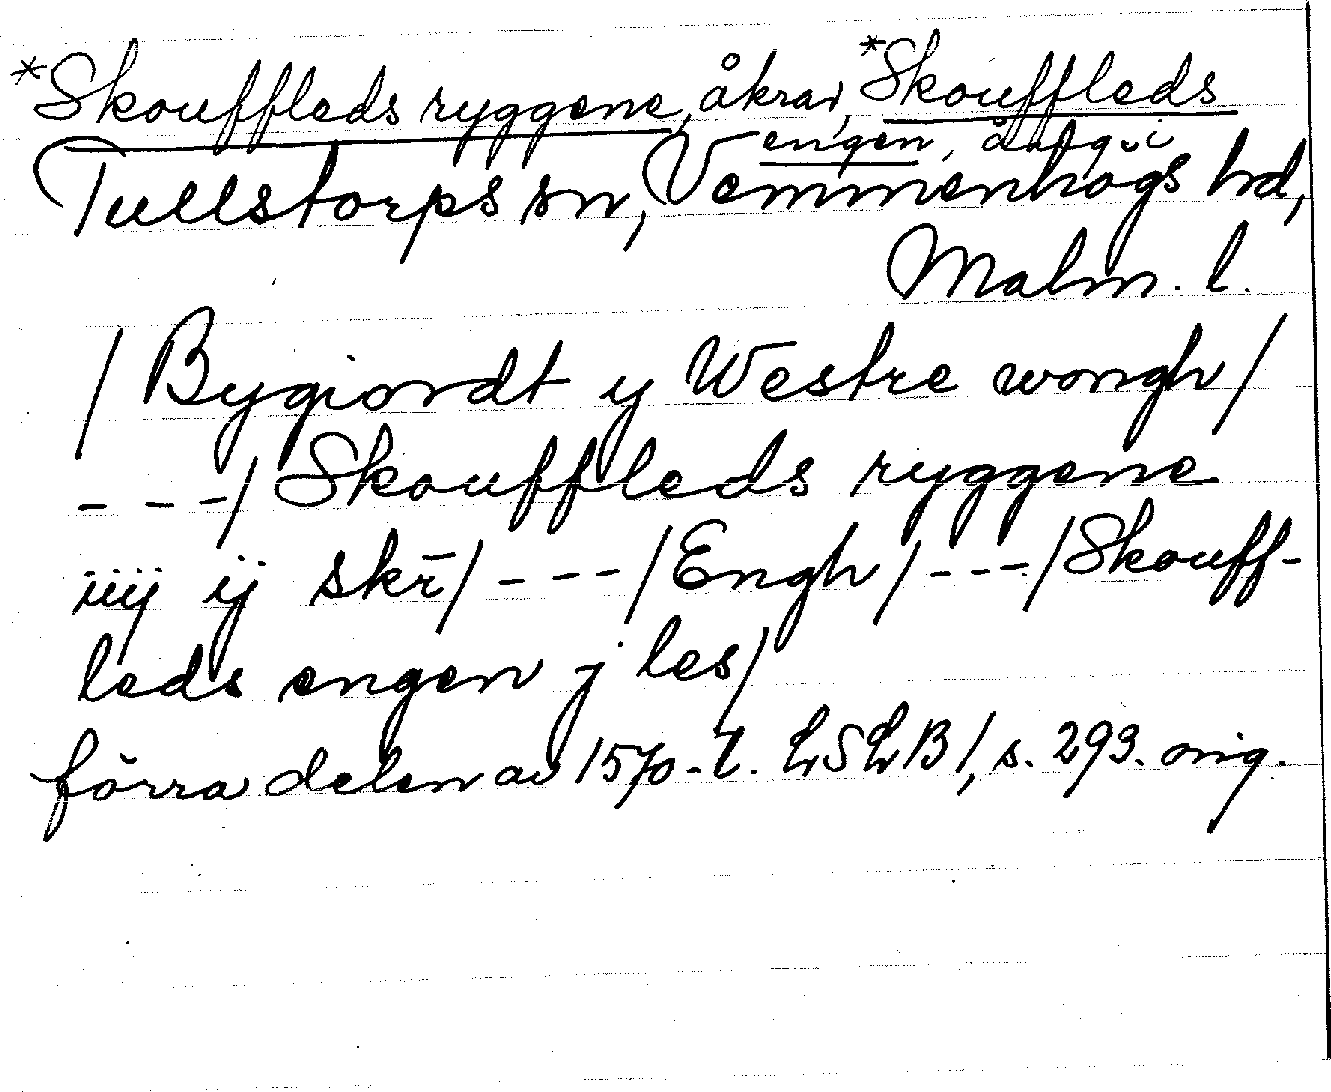 *Skouffleds ryggene, åkrar, *Skouffleds
engen, äng i
Tullstorps sn, Vemmenhögs hd,
Malm. l.
/ Bygiordt y Westre wongh/
- - -/ Skouffleds ryggene
iiij ij skr̄/ - - - /Engh/ - - - /Skouff-
leds engen j les/
förra delen av 1570-t. LSLB1, s. 293. orig.